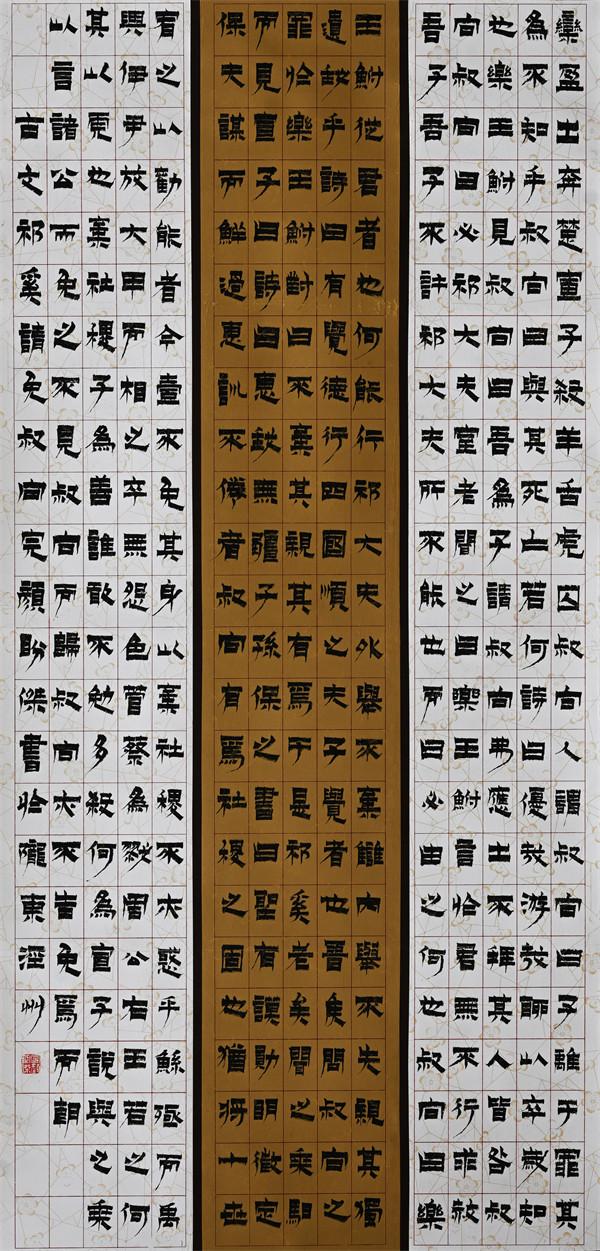 欒盈出奔楚宣子殺羊舌虎囚叔向人謂叔向曰子離于罪其
為不知乎叔向曰與其死亡若何詩曰優哉游哉聊以卒歲知
也樂王鮒見叔向曰吾為子請叔向弗應出不拜其人皆咎叔
向叔向曰必祁大夫室老聞之曰樂王鮒言於君無不行求赦
吾子吾子不許祁大夫所不能也而曰必由之何也叔向曰樂
王鮒從君者也何能行祁大夫外舉不棄讎內舉不失親其獨
遺我乎詩曰有覺德行四國順之夫子覺者也晉侯問叔向之
罪於樂王鮒對曰不棄其親其有焉于是祁奚老矣聞之乘馹
而見宣子曰詩曰惠我無疆子孫保之書曰聖有謨勛明徵定
保夫謀而鮮過惠訓不倦者叔向有焉社稷之固也猶將十世
宥之以勸能者今壹不免其身以棄社稷不亦惑乎鯀殛而禹
興伊尹放大甲而相之卒無怨色管蔡為戮周公右王若之何
其以虎也棄社稷子為善誰敢不勉多殺何為宣子說與之乘
以言諸公而免之不見叔向而歸叔向亦不告免焉而朝
古文祁奚請免叔向完顏盼傑書於隴東涇州